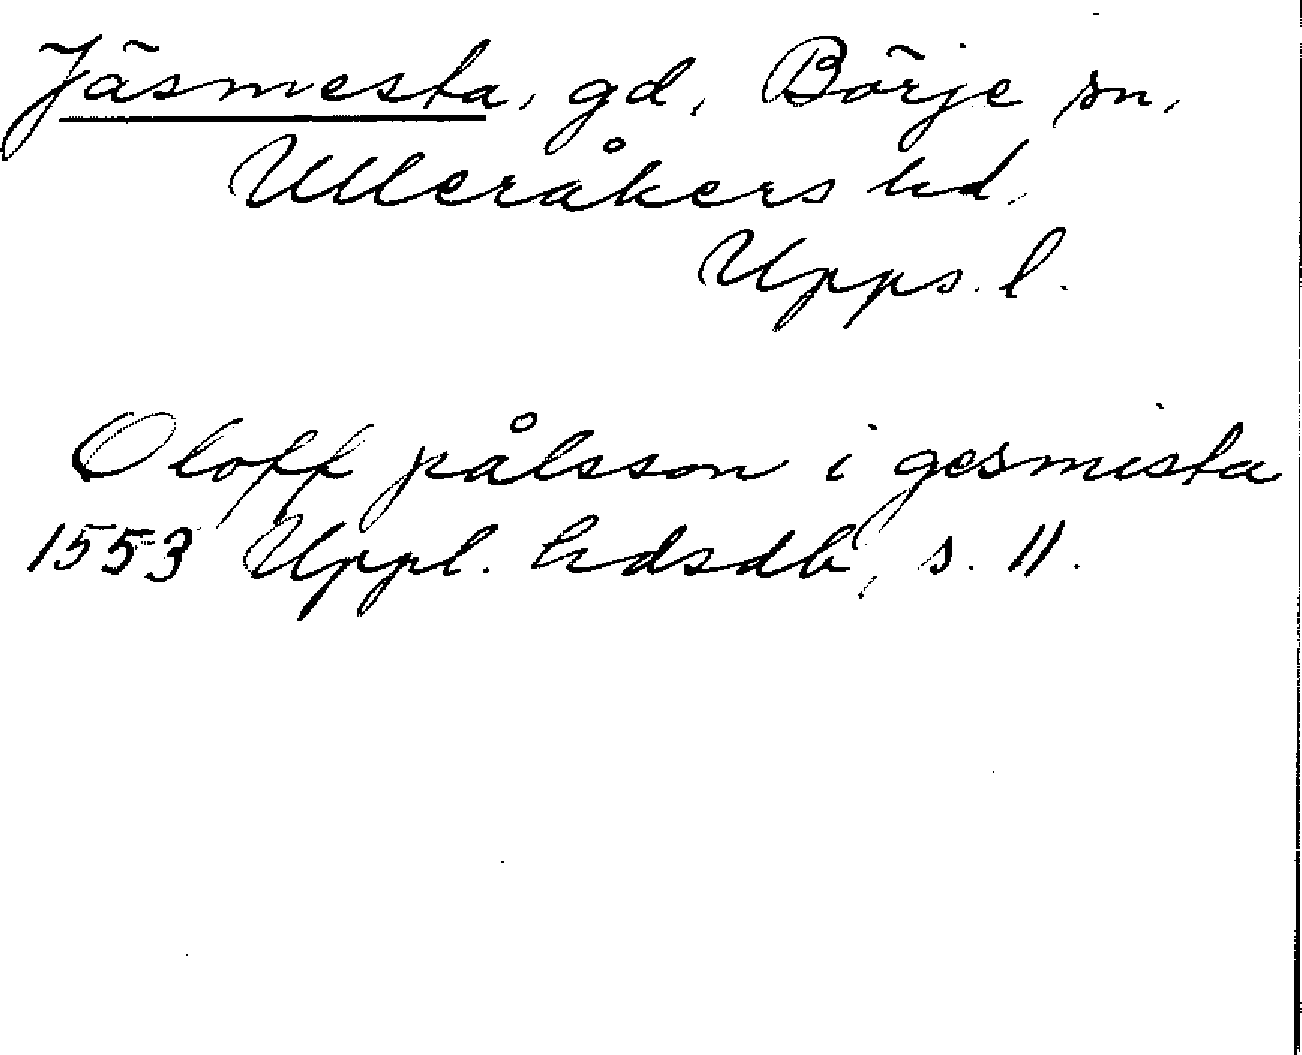 Jäsmesta, gd, Börje sn,
Ulleråkers hd.
Upps. l.
Oloff pålsson i gesmista
1553 Uppl. hdsdb, s. 11.